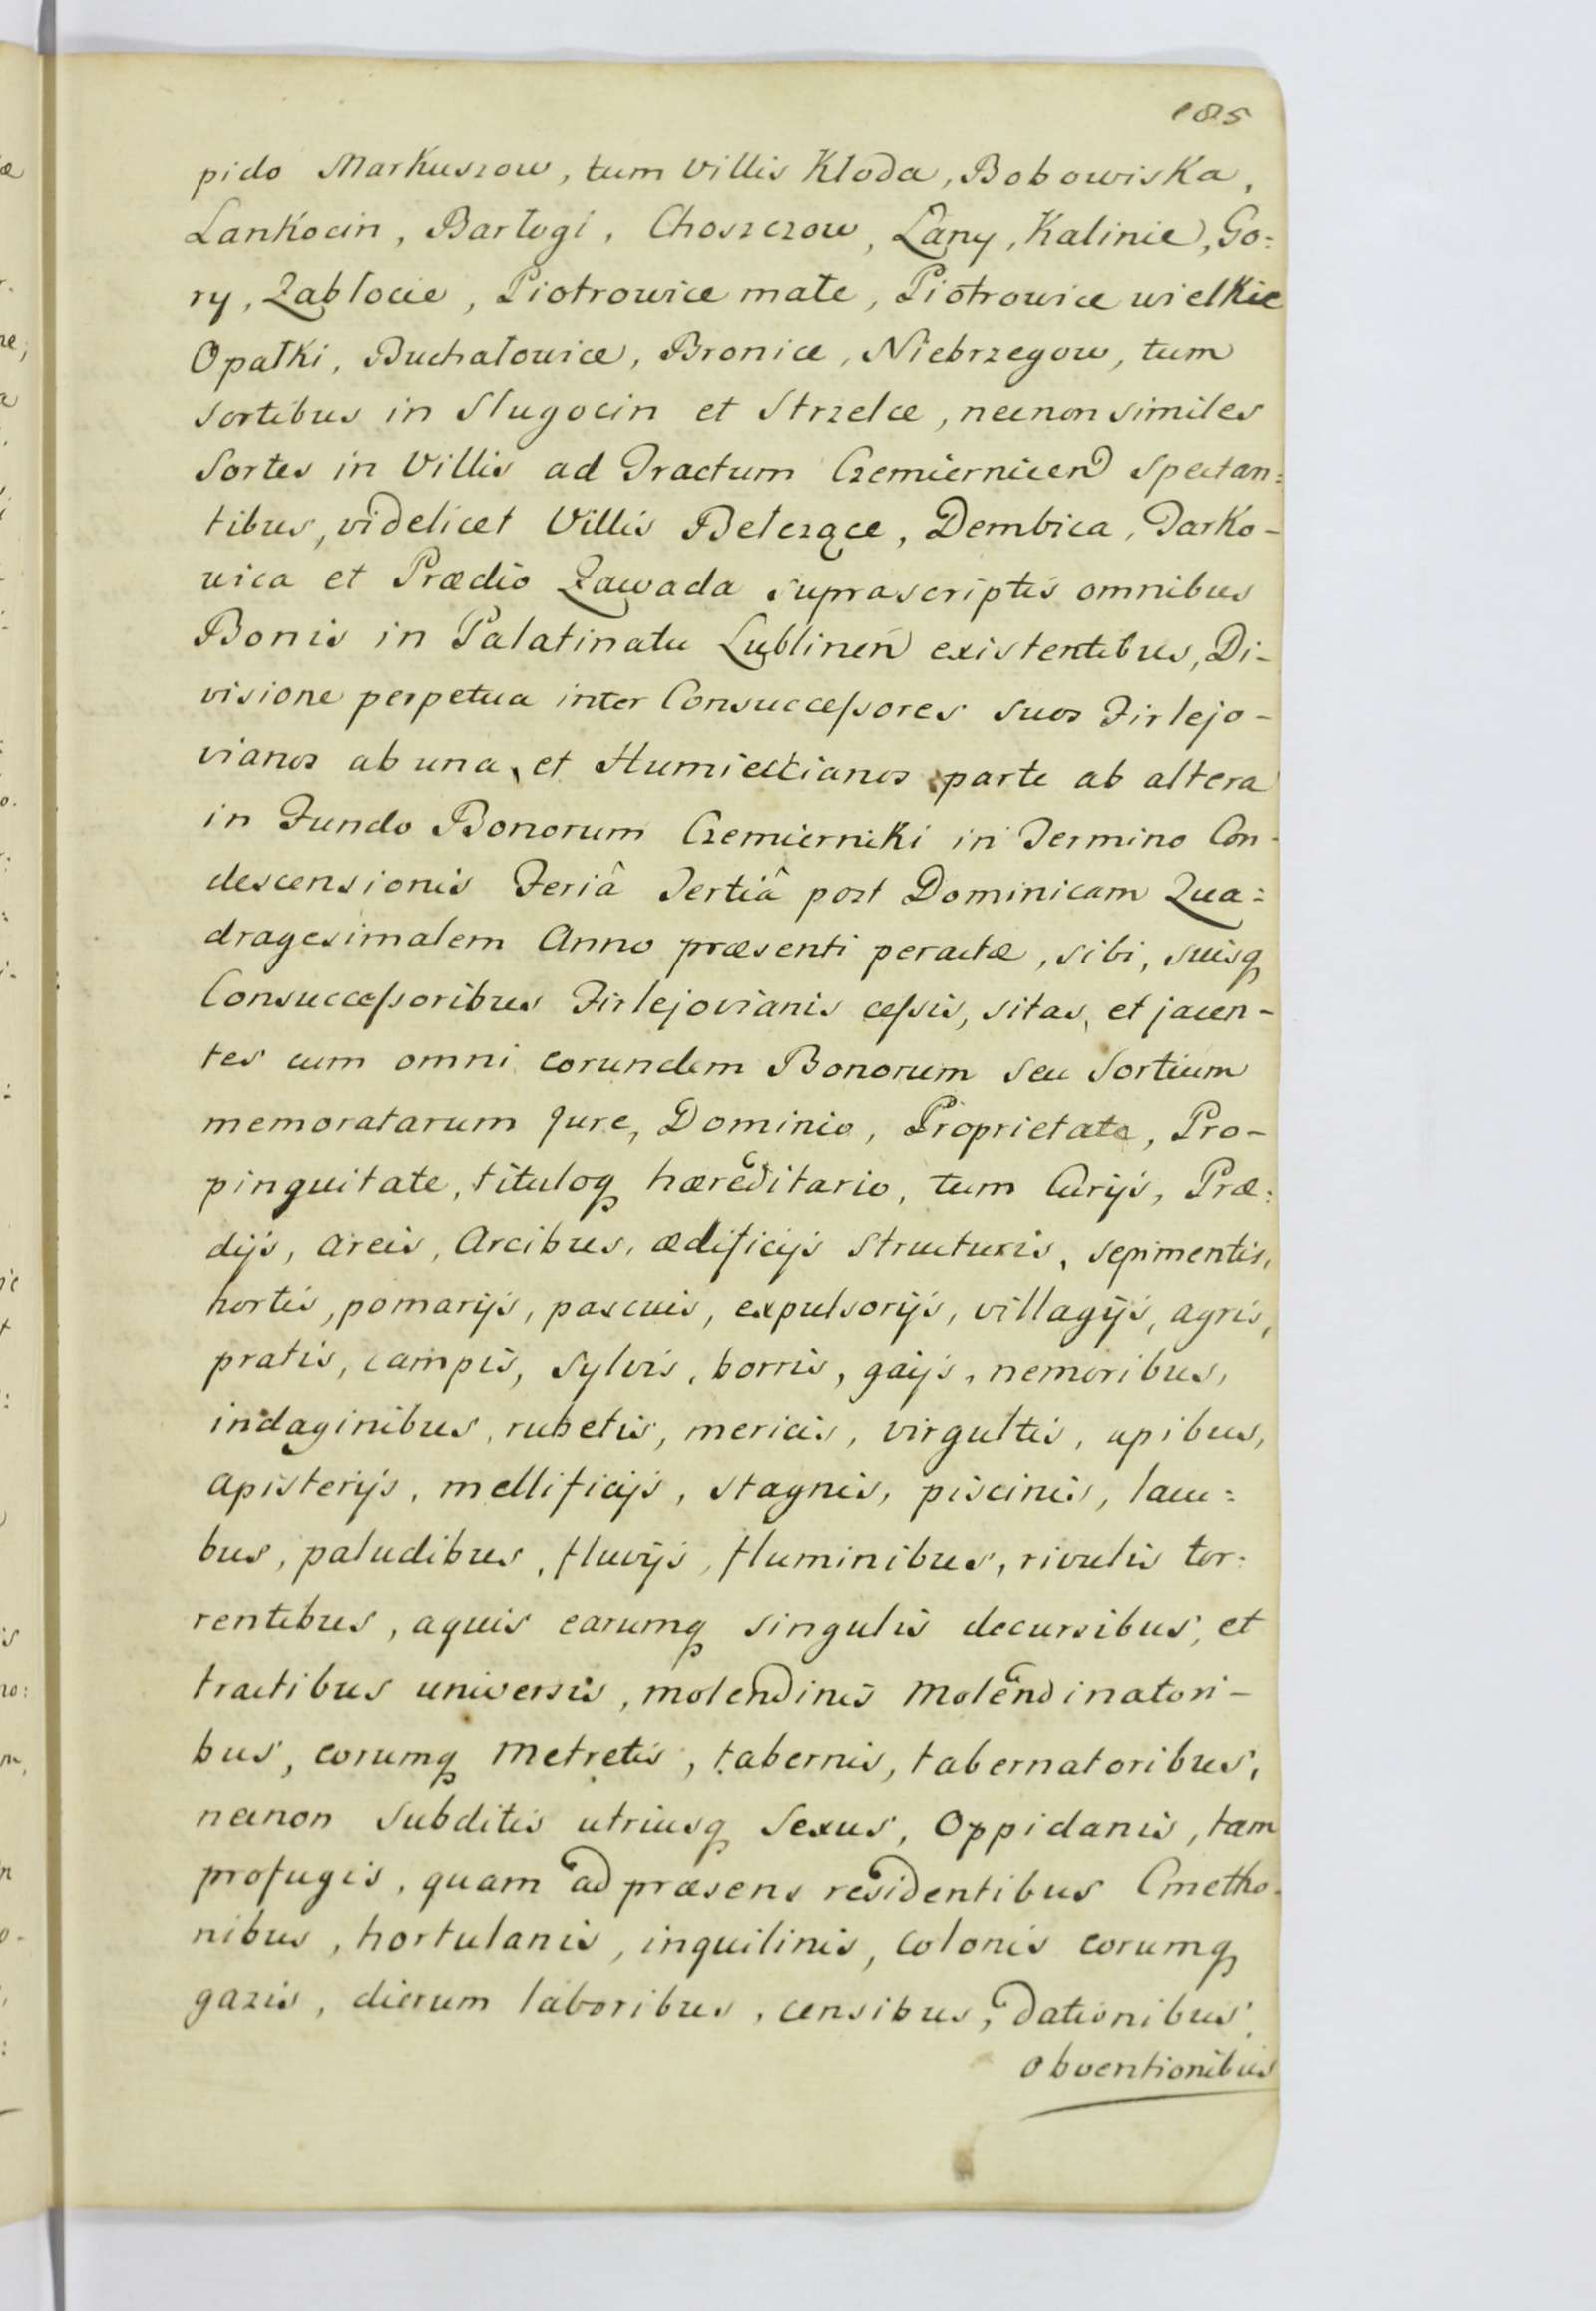 185
pido Markuszow, tum Villis Kłoda, Bobowiska,
Lankocin, Barłogi, Choszczow, Łany, Kalinie, Go=
ry, Zabłocie, Piotrowice małe, Piotrowice wielkie
Opałki, Buchałowice, Bronice, Niebrzegow, tum
Sortibus in Sługocin et Strzelce, necnon similes
Sortes in Villis ad Tractum Czemiernicen spectan=
tibus, videlicet Villis Bełczące, Dembica, Tarko-
wica et Prædio Zawada suprascriptis omnibus
Bonis in Palatinatu Lublinen existentibus, Di-
visione perpetua inter Consuccessores suos Firlejo-
vianos ab una, et Humiectianos parte ab altera
in Fundo Bonorum Czemierniki in Termino Con-
descensionis Feriâ Tertiâ post Dominicam Qua=
dragesimalem Anno præsenti peractæ, sibi, suisq
Consuccessoribus Firlejovianis cessis, sitas, et jacen-
tes cum omni eorundem Bonorum seu Sortium
memoratarum Jure, Dominio, Proprietate, Pro-
pinguitate, tituloq hæreditario, tum Curijs, Præ=
dijs, areis, Arcibus, ædificijs structuris, sepimentis,
hortis, pomarijs, pascuis, expulsorijs, villagijs, agris,
pratis, campis, Sylvis, borris, gaijs, nemoribus,
indaginibus, rubetis, mericis, virgultis, apibus,
apisterijs, mellificijs, stagnis, piscinis, lacu=
bus, paludibus, fluvijs, fluminibus, rivulis tor=
rentibus, aquis earumq singulis decursibus, et
tractibus universis, molendinis Molendinatori-
bus, eorumq Metretis, tabernis, tabernatoribus,
necnon Subditis utriusq Sexus, Oppidanis, tam
profugis, quam ad præsens residentibus Cmetho-
nibus, hortulanis, inquilinis, Colonis eorumq
gazis, dierum laboribus, censibus, dationibus,
obventionibus